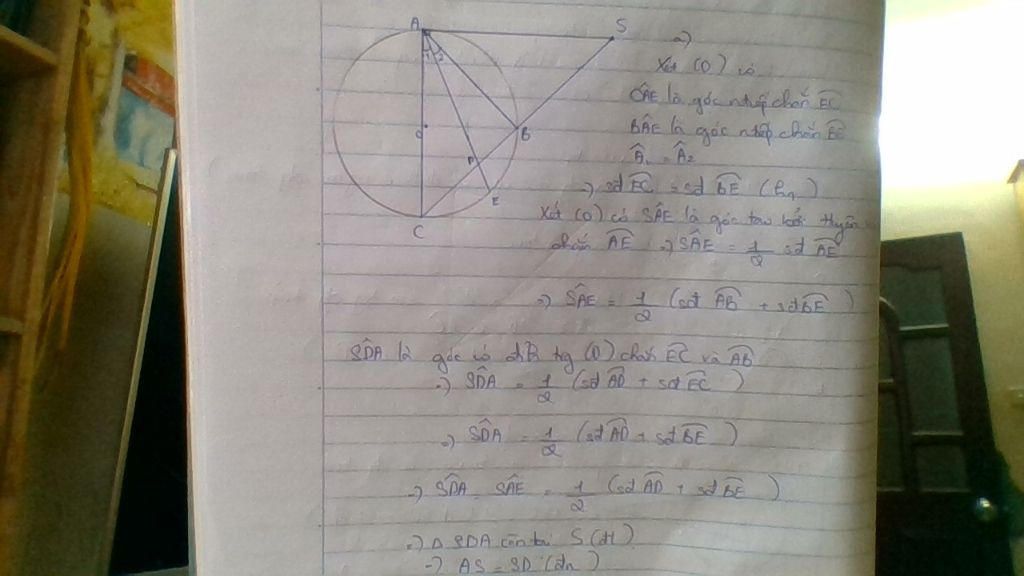 A
S
1
2
O
B
D
E
C
a)
Xét (O) có
CÂE là góc ntiếp chắn EC
BÂE là góc ntiếp chắn EB
Â₁ = Â₂
=> sđ EC = sđ BE (hq)
Xét (O) có SÂE là góc tạo bởi ttuyến
chắn AE => SÂE = 1/2 sđ AE
=> SÂE = 1/2 (sđ AB + sđ BE)
SD̂A là góc có đỉnh trg (O) chắn EC và AB
=> SD̂A = 1/2 (sđ AD + sđ EC)
=> SD̂A = 1/2 (sđ AD + sđ BE)
=> SD̂A = SÂE = 1/2 (sđ AD + sđ BE)
=> Δ SDA cân tại S (đl)
=> AS = SD (đn)